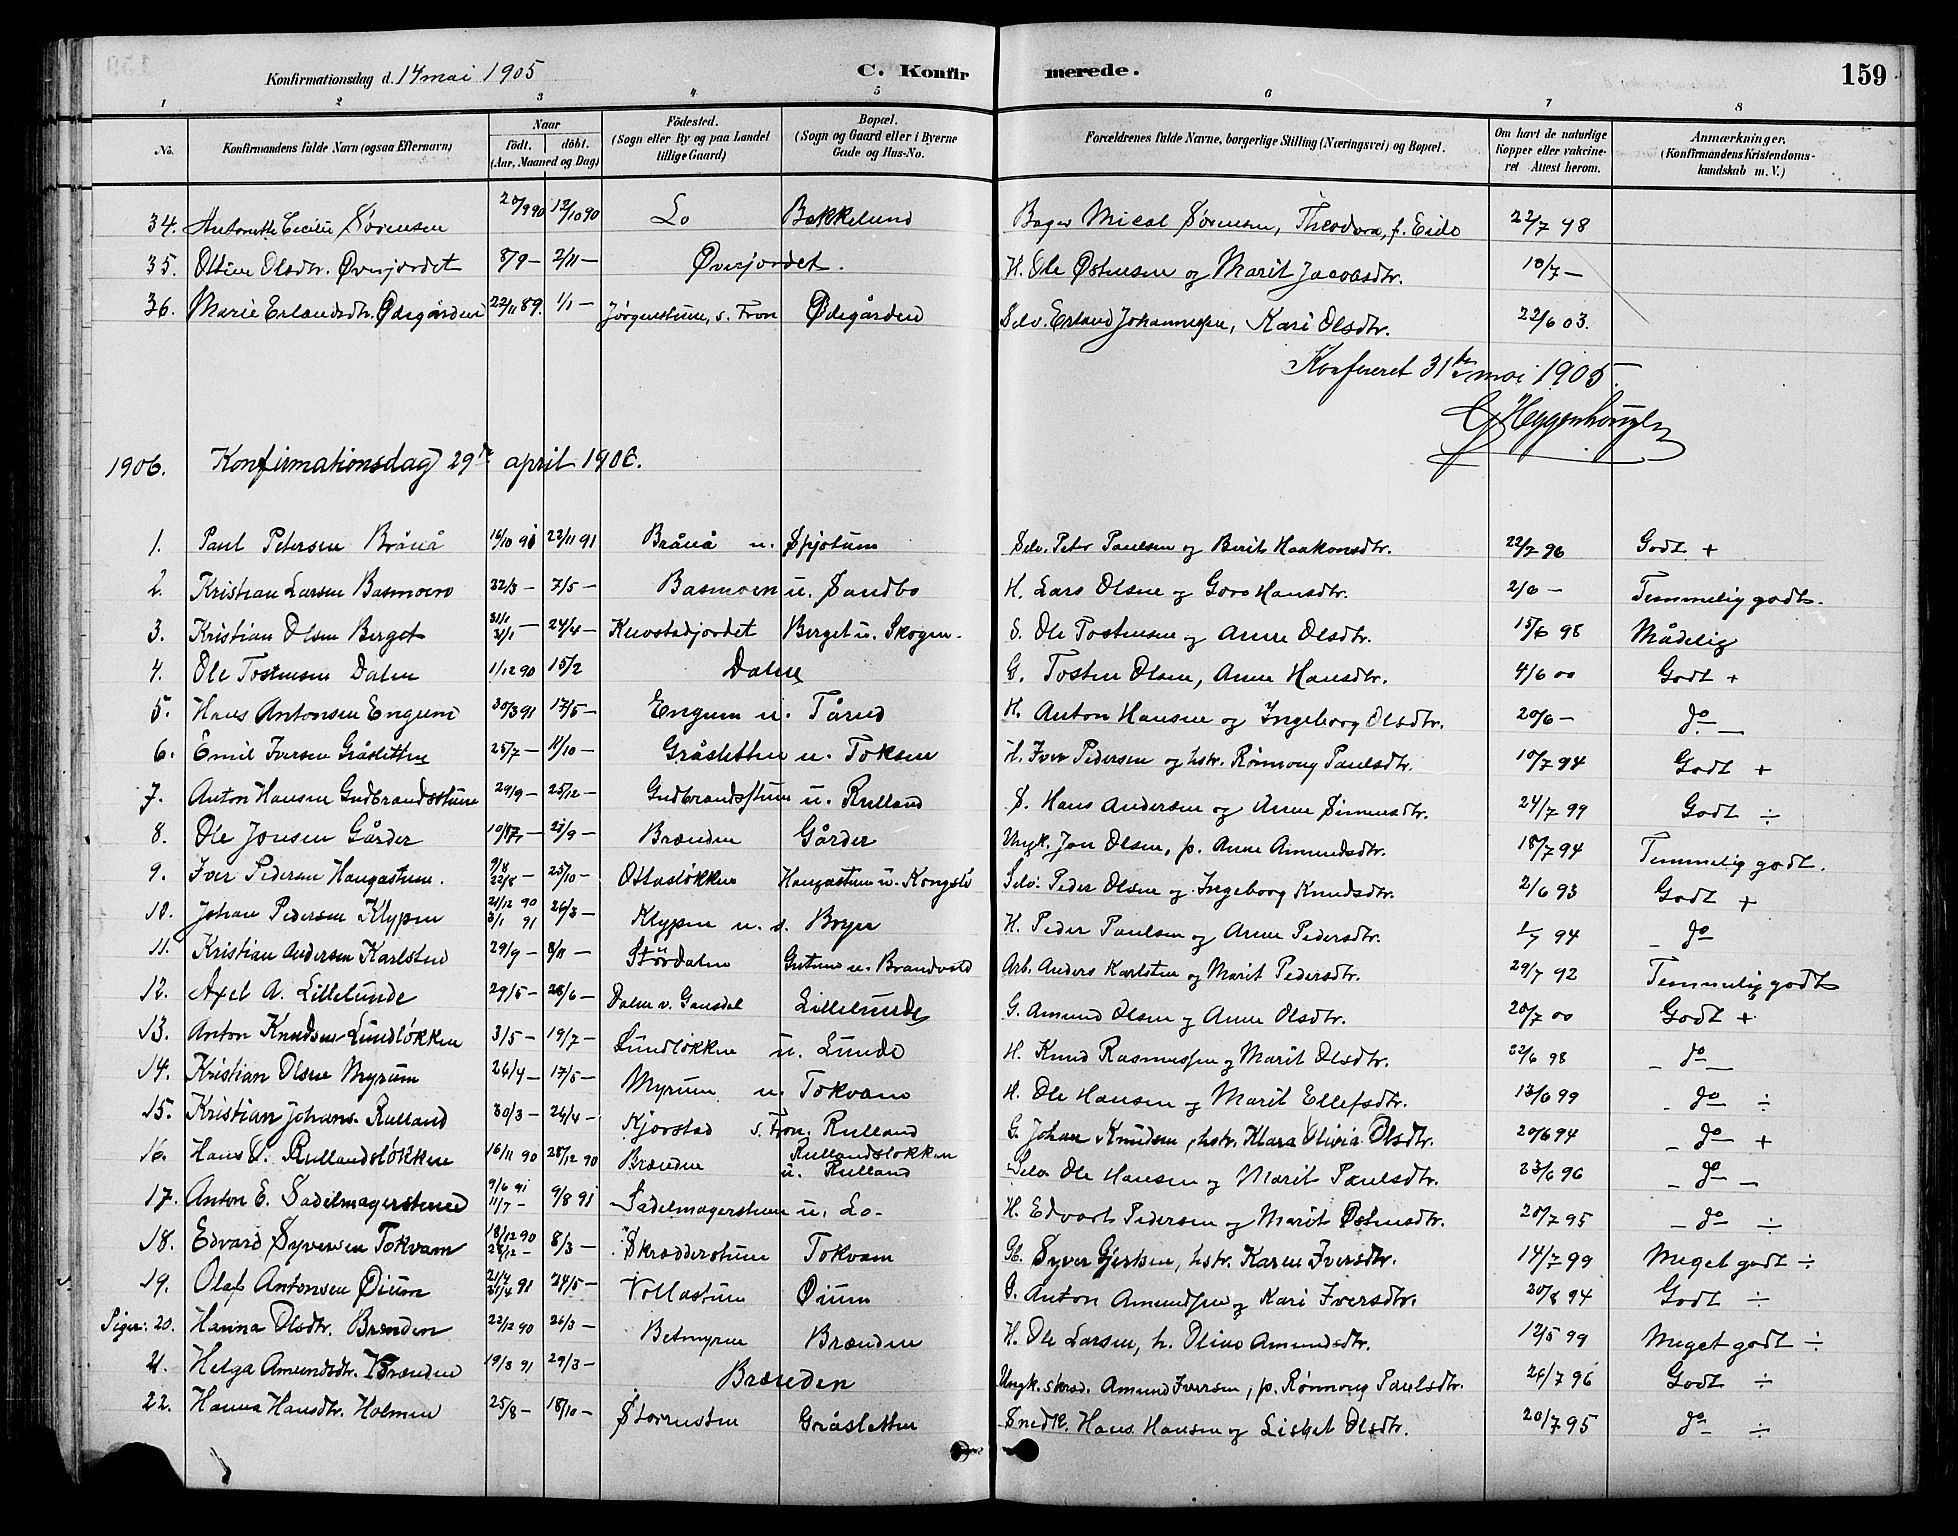 Konfirmationsdag d. 14 mai 1905 C. Konfirmerede. 159
1 2 3 4 5 6 7 8
No. Konfirmandens fulde Navn (ogsaa Efternavn) Naar født. døbt. (Aar, Maaned og Dag) Fødested. (Sogn eller By og paa Landet tillige Gaard) Bopæl. (Sogn og Gaard eller i Byerne Gade og Hus-No. Forældrenes fulde Navne, borgerlige Stilling (Næringsvei) og Bopæl. Om havt de naturlige Kopper eller vakcineret Attest herom. Anmærkninger. (Konfirmandens Kristendomskundskab m. V.)
34. Antonette Cecilie Sørensen 20/9 90 12/10 90 Lo Bakkelund Bager Mical Sørensen, Theodora, f. Eide 22/7 98
35. Ottine Olsdtr. Øverjordet 8/9 — 2/11 — Øverjordet. H. Ole Østensen og Marit Jacobsdtr. 10/7 —
36. Marie Erlandsdtr. Ødegården 22/11 89. 1/1 — Jørgenstuen, s. Fron Ødegården Selv. Erland Johannesen, Kari Olsdtr. 22/6 03.
Konfereret 31te mai 1905.
Heggenhougen
1906. Konfirmationsdag 29de april 1906.
1. Paul Petersen Brånå 16/10 91 22/11 91 Brånå u. Spjotum Selv. Peter Paulsen og Berit Haakonsdtr. 22/7 96 Godt +
2. Kristian Larsen Basmoen 22/3 — 7/5 — Basmoen u. Sandbo H. Lars Olsen og Goro Hansdtr. 2/6 — Temmelig godt.
3. Kristian Olsen Berget 31/1 — 24/4 — Berget u. Skogen. S. Ole Tostensen og Anne Olsdtr. 15/6 98 Mådelig
4. Ole Tostensen Dalen 1/12 90 15/2 Dalen G. Tosten Olsen, Anne Hansdtr. 4/6 00 Godt +
5. Hans Antonsen Engum 30/3 91 17/5 — Engum u. Tårud H. Anton Hansen og Ingeborg Olsdtr. 20/6 — do —
6. Emil Iversen Gråsletten 25/7 — 11/10 — Gråsletten u. Toksen H. Iver Pedersen og hstr. Rønnoug Paulsdtr. 10/7 94 Godt +
7. Anton Hansen Gudbrandsstuen 29/9 — 25/12 — Gudbrandsstuen u. Rulland S. Hans Andersen og Anne Simensdtr. 24/7 99 Godt ÷
8. Ole Jonsen Gårder — 21/9 — Brænden Gårder Ungk. Jon Olsen, p. Anne Amundsdtr. 18/7 94 Temmelig godt.
9. Iver Pedersen Haugastuen. 22/8 — 25/10 — Ottasløkken Haugastuen u. Kongsli Selv. Peder Olsen og Ingeborg Knudsdtr. 2/6 93 Godt +
10. Johan Pedersen Klypen 21/12 90 3/1 91 26/3 — Klypen u. s. Bryn H. Peder Paulsen og Anne Pedersdtr. 94 — do
11. Kristian Andersen Karlsten 29/9 — 8/11 — Stordalen u. Brandvold Arb. Anders Karlsten og Marit Pedersdtr. 29/7 92 Temmelig godt
12. Axel A. Lillelunde 29/5 — 28/6 — Dalen v. Gausdal Lillelunde G. Amund Olsen og Anne Olsdtr. 20/7 00 Godt +
13. Anton Knudsen Lundløkken 3/5 — 19/7 — Lundløkken u. Lunde H. Knud Rasmussen og Marit Olsdtr. 22/6 98 — do —
14. Kristian Olsen Myrum 26/4 — 17/5 — Myrum u. Tokvam H. Ole Hansen og Marit Ellefsdtr. 13/6 99 — do ÷
15. Kristian Johans. Rulland 30/3 — 26/4 — Kjorstad s. Fron. Rulland G. Johan Knudsen, hstr. Klara Olivia Olsdtr. 20/6 94 — do +
16. Hans O. Rullandsløkken 16/11 90 28/12 90 Brænden Rullandsløkken u. Rulland Selv. Ole Hansen og Marit Paulsdtr. 23/6 96 — do —
17. Anton E. Sadelmagerstuen 9/6 91 11/7 — 9/8 91 Sadelmagerstuen u. Lo. H. Edvart Pedersen og Marit Østensdtr. 20/7 95 — do ÷
18. Edvard Syversen Tokvam 18/12 90 28/12 — 8/3 — Skrædderstuen Tokvam Gb. Syver Gjertsen, hstr. Karen Iversdtr. 14/7 99 Meget godt ÷
19. Olaf Antonsen Øium 21/4 91 24/5 — Vollastuen Øium S. Anton Amundsen og Kari Iversdtr. 20/8 94 Godt ÷
Piger: 20. Hanna Olsdtr. Brænden 22/12 90 26/3 — Betmyren Brænden H. Ole Larsen, h. Oline Amundsdtr. 12/5 99 Meget godt ÷
21. Helga Amundsdtr. Brænden 19/3 91 29/3 — Brænden Ungk. skræd. Amund Iversen, p. Rønnoug Paulsdtr. 26/7 96 Godt ÷
22. Hanna Hansdtr. Holmen 25/8 — 18/10 — Storrusten Gråsletten Snedk. Hans Hansen og Lisbet Olsdtr. 20/7 95 do ÷